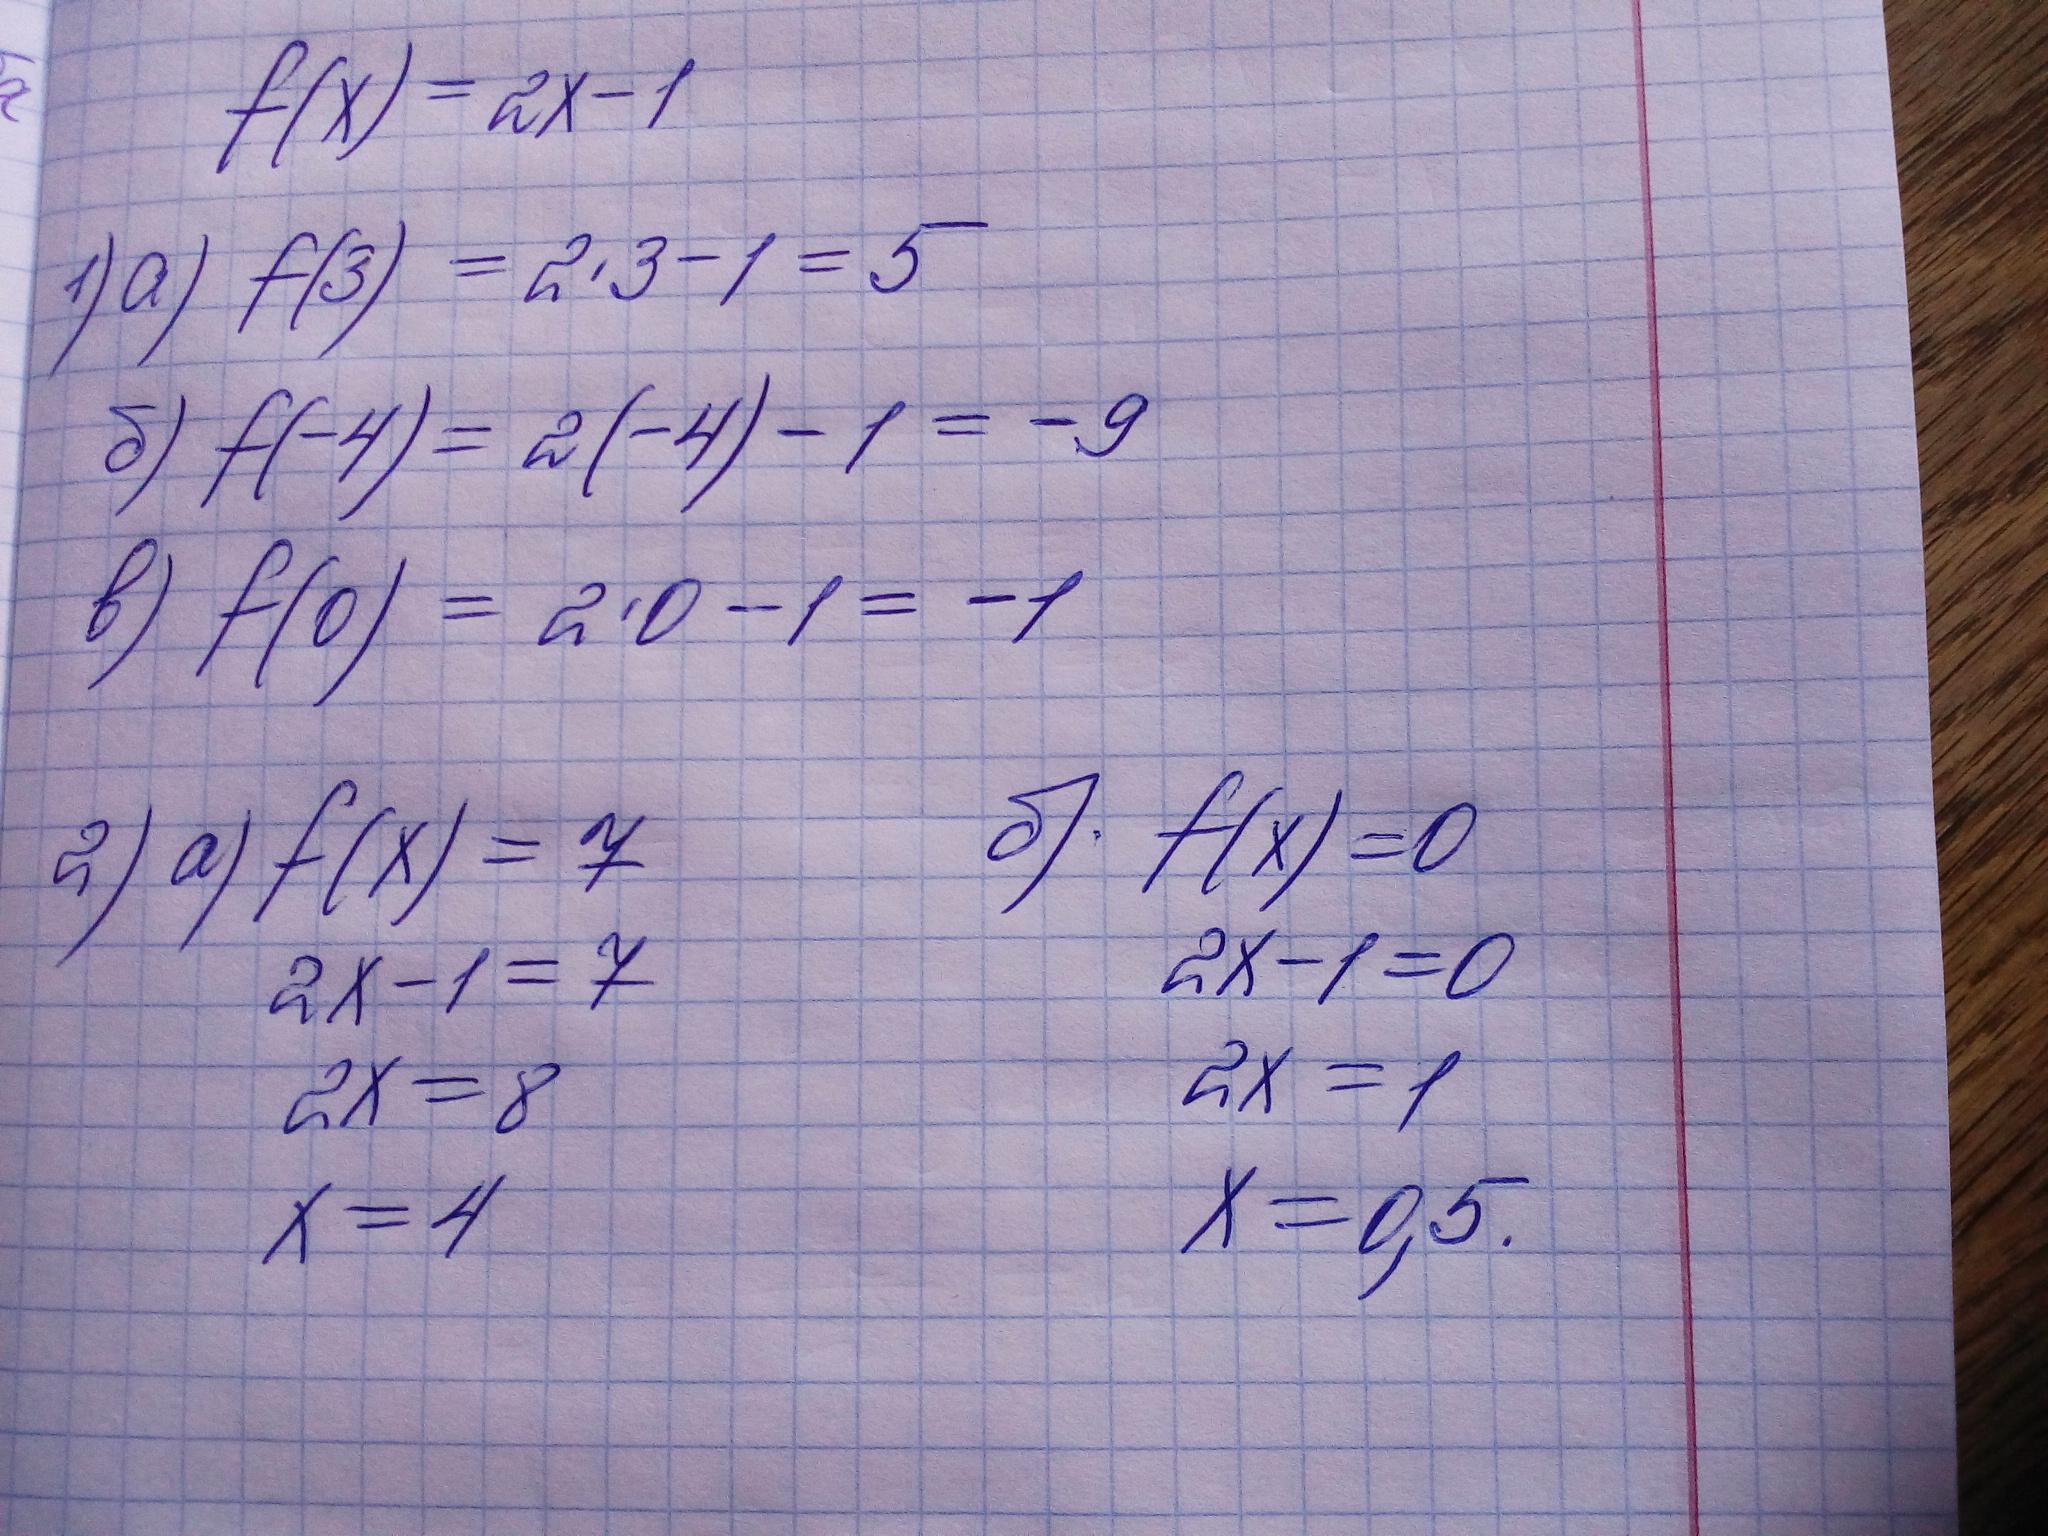 f(x) = 2x - 1
1) а) f(3) = 2·3 - 1 = 5
б) f(-4) = 2(-4) - 1 = -9
в) f(0) = 2·0 - 1 = -1
2) а) f(x) = 7
2x - 1 = 7
2x = 8
x = 4
б). f(x) = 0
2x - 1 = 0
2x = 1
x = 0,5.